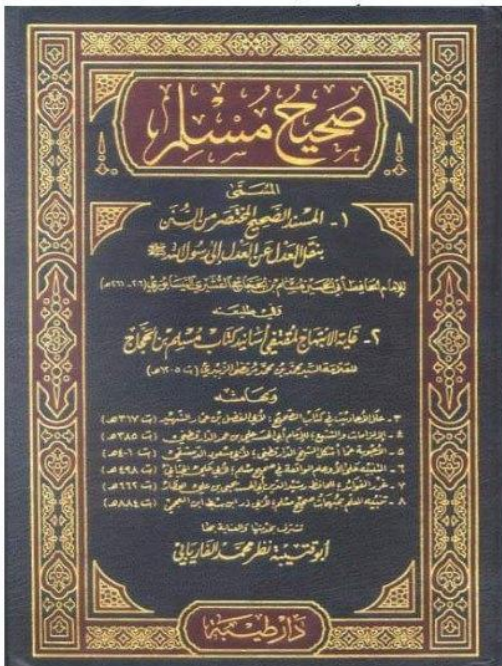 صَحِيحُ مُسْلِم
المُسَمَّى
١- المسند الصحيح المختصر من السنن
بنقل العدل عن العدل إلى رسول الله ﷺ
للإمام الحافظ أبي الحسين مسلم بن الحجاج القشيري النيسابوري (٢٠٦-٢٦١هـ)
وفي طليعته
٢- غاية الابتهاج لمقتفي أسانيد كتاب مسلم بن الحجاج
للعلامة السيد محمد بن محمد مرتضى الزبيدي (ت ١٢٠٥هـ)
وبهامشه
٣- علل الأحاديث في كتاب الصحيح لأبي الفضل بن عمار الشهيد (ت ٣١٧هـ)
٤- الإلزامات والتتبع للإمام أبي الحسن علي بن عمر الدارقطني (ت ٣٨٥هـ)
٥- الأجوبة عما أشكل الشيخ الدارقطني لأبي مسعود الدمشقي (ت ٤٠١هـ)
٦- التنبيه على الأوهام الواقعة في صحيح مسلم لأبي علي الجياني (ت ٤٩٨هـ)
٧- غرر الفوائد للحافظ رشيد الدين أبي الحسين يحيى بن علي العطار (ت ٦٦٢هـ)
٨- تنبيه المعلم بمبهمات صحيح مسلم لأبي ذر ابن سبط ابن العجمي (ت ٨٨٤هـ)
تشرف بخدمتها والعناية بها
أبو قتيبة نظر محمد الفاريابي
دار طيبة